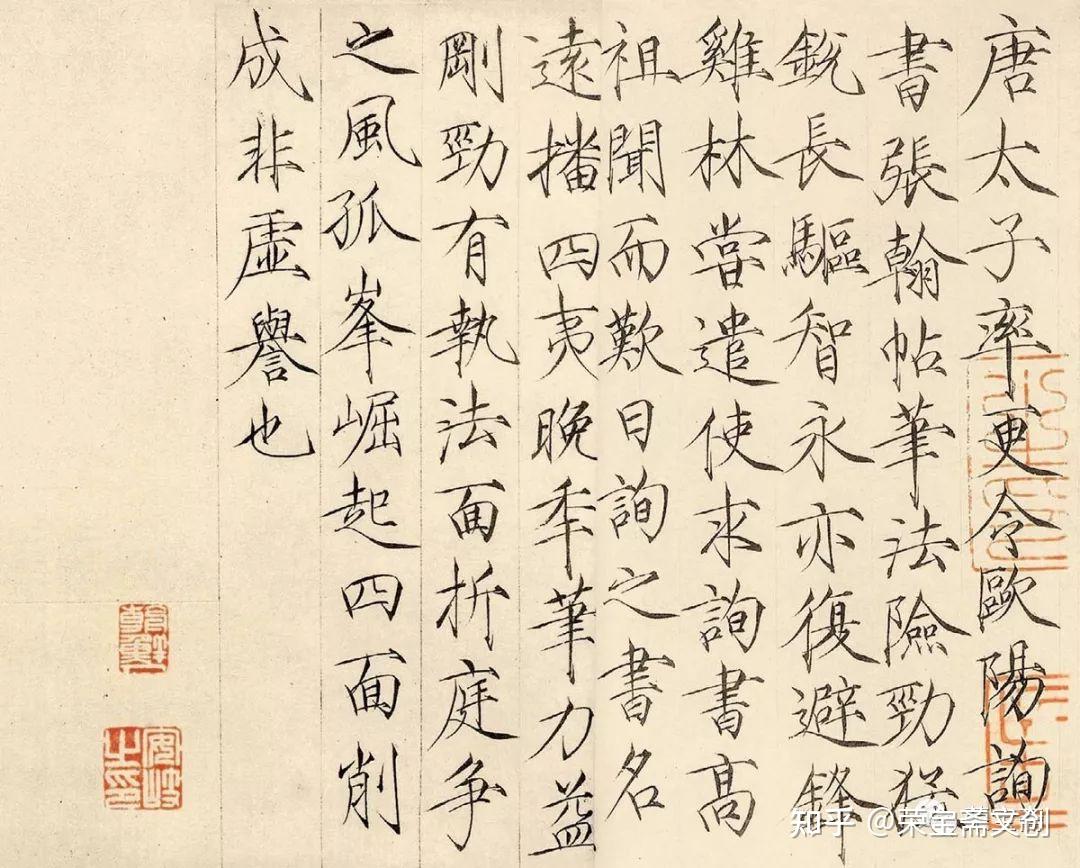 唐太子率更令歐陽詢
書張翰帖筆法險勁猛
銳長驅智永亦復避鋒
雞林嘗遣使求詢書高
祖聞而歎曰詢之書名
遠播四夷晚年筆力益
剛勁有執法面折庭爭
之風孤峯崛起四面削
成非虛譽也
知乎 @荣宝斋文创